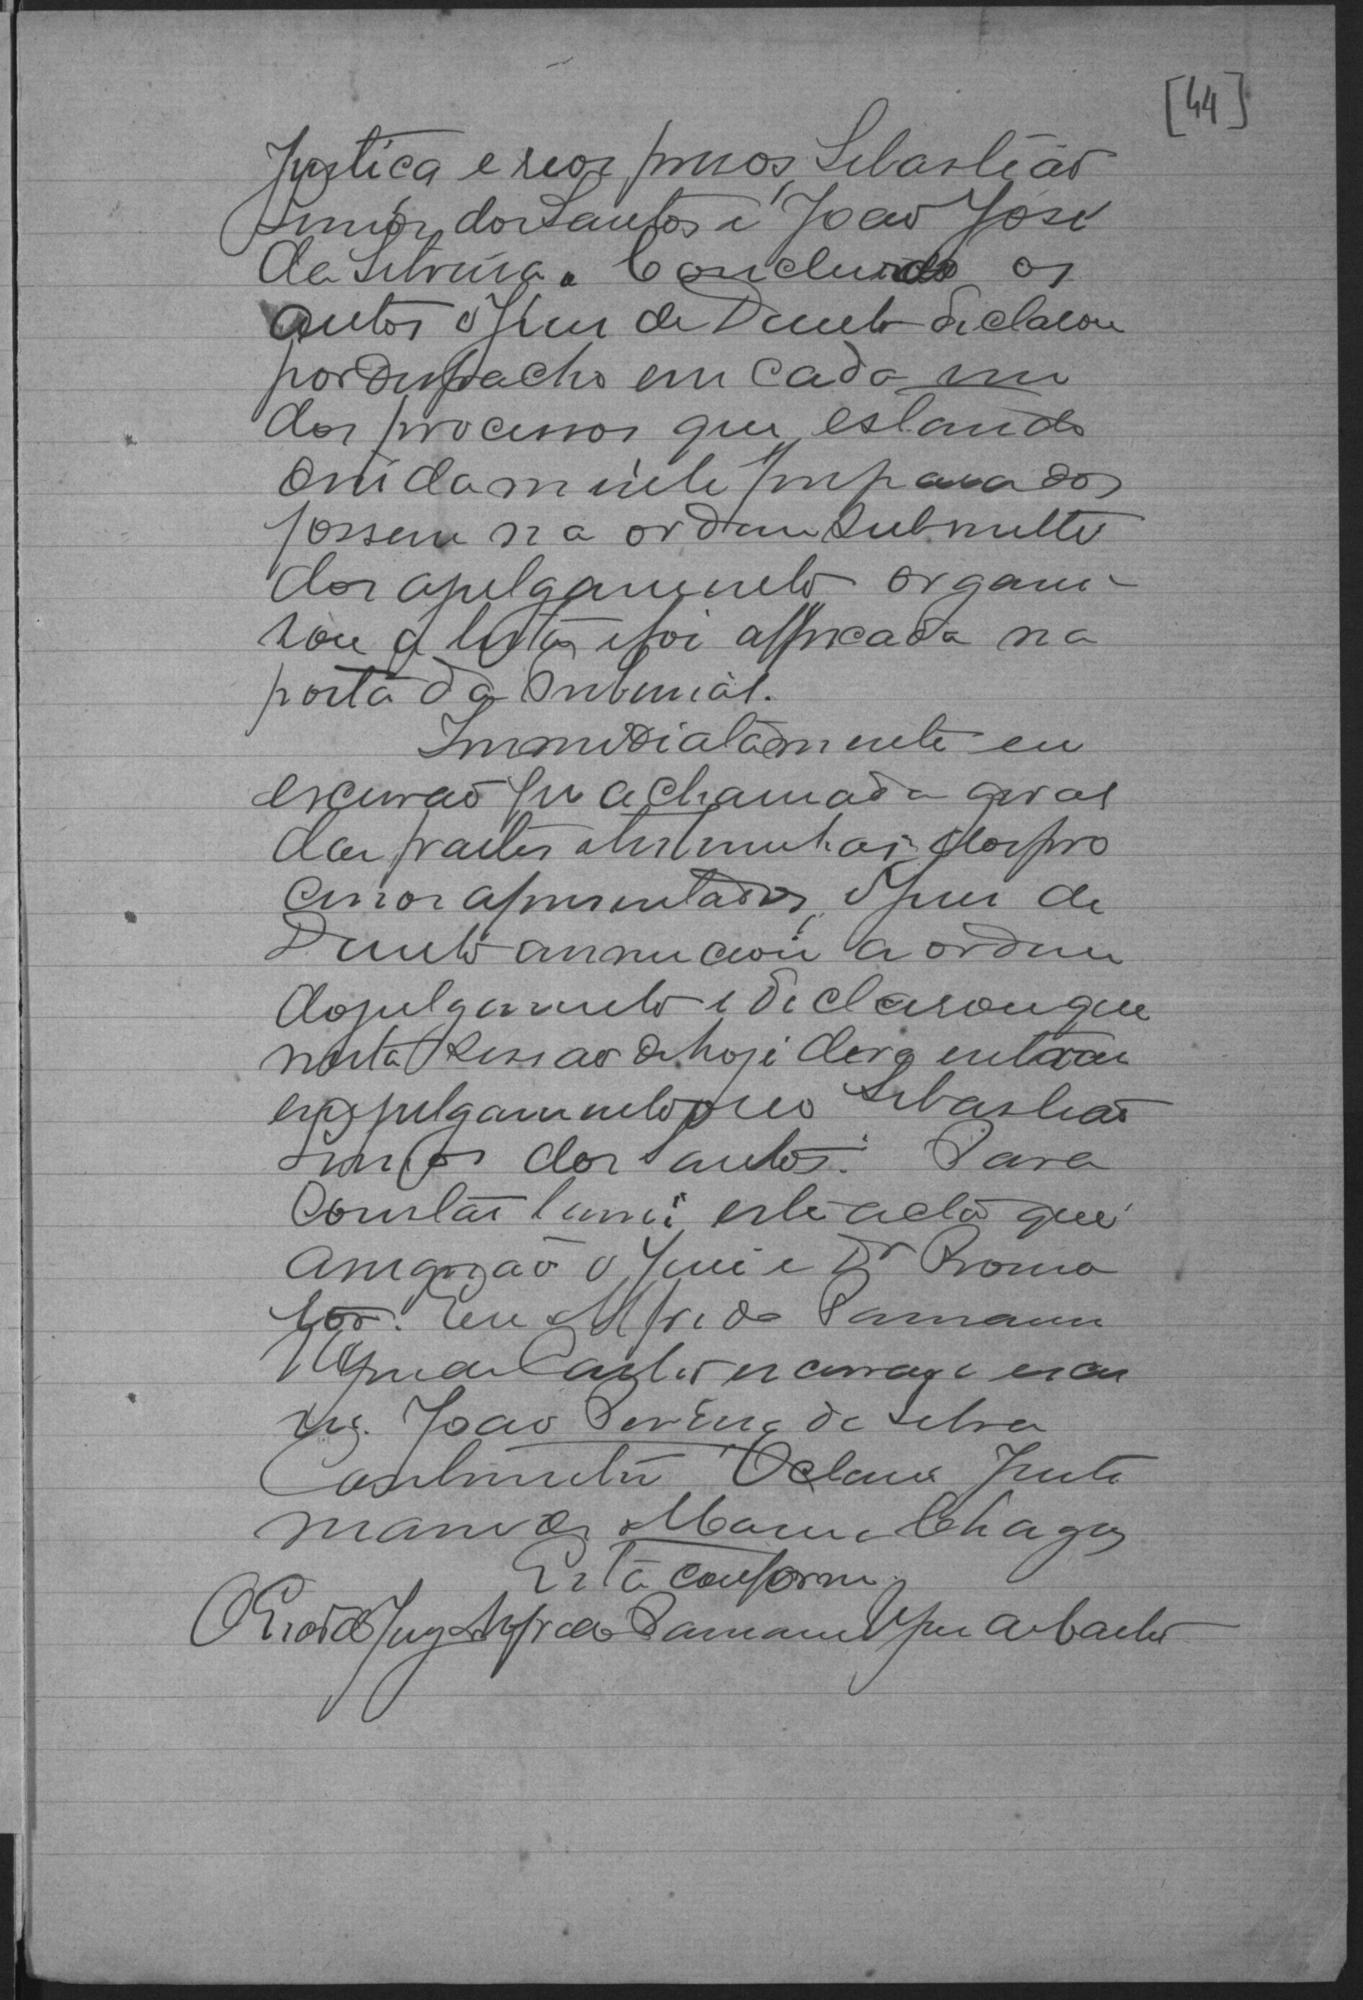 [44]
Justiça e reos presos, Sebastião
Simões dos Santos e João José
da Silveira. Concluido os
autos o Juiz de Direito declarou
por despacho em cada um
dos processos que estando
devidamente preparados
fossem na ordem submetti
dos a julgamento organi
sou a lista e foi affixada na
porta do Tribunal.
Immediatamente eu
escrivão fiz a chamada geral
das partes e testemunhas dos pro
cessos apresentados, o Juiz de
Direito annunciou a ordem
do julgamento e declarou que
nesta sessão de hoje deva entrar
em julgamento o reo Sebastião
Simões dos Santos. Para
constar lavrei esta acta que
assignão o Juiz e Dr Promo
tor. Eu Alfredo
de Castro escrivão e escre
vi. João Pereira da Silva
Castro Octavio
Mario Chagas
Está conforme.
O Escrivão do Jury Alfredo de Castro